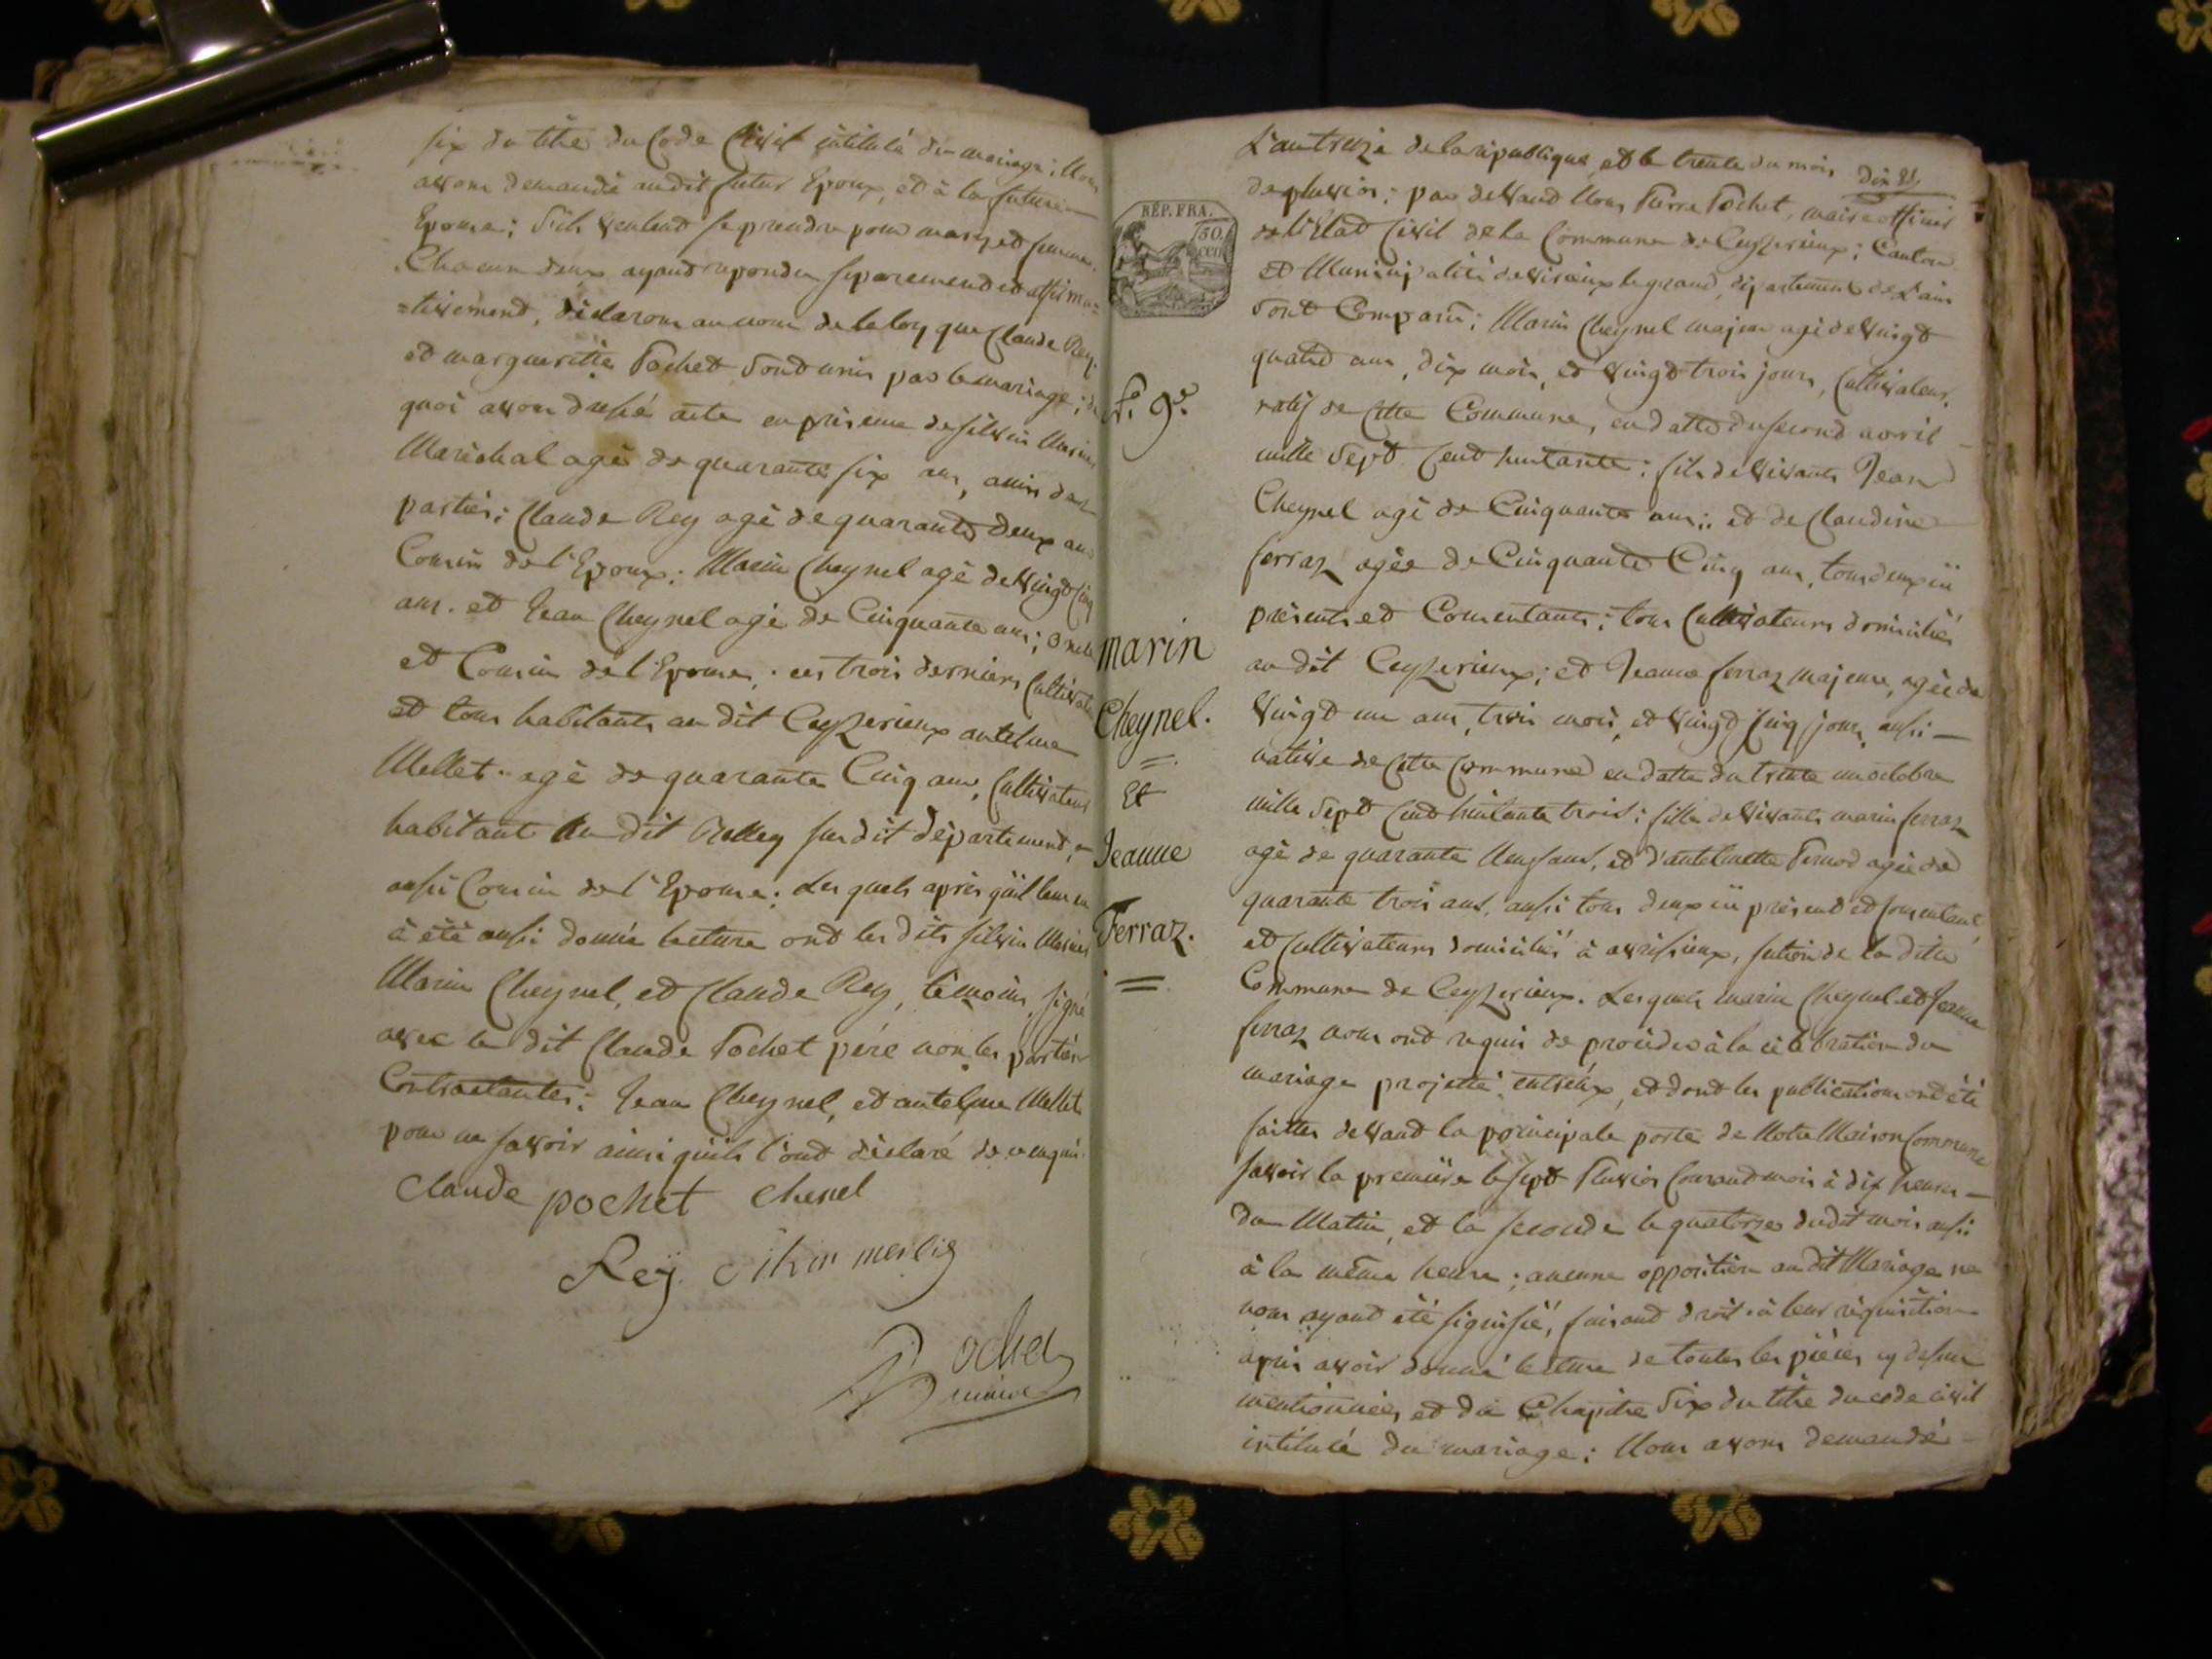 six du titre du Code Civil intitulé du mariage ; Nous
avons demandé audit futur Epoux, et à la future
Epouse ; s'ils veulent se prendre pour mary et femme.
Chacun deux ayant repondu separement et affirma=
=tivement, déclarons au nom de la loy que Claude Rey
et margueritte Pochet sont unis par le mariage ; de
quoi avons dressé acte en présence de silvin
Maréchal agé de quarante six ans, amis des
parties ; Claude Rey agé de quarante deux ans
Cousin de l'Epoux ; Marin Cheynel agé de vingt Cinq
ans. et Jean Cheynel agé de Cinquante ans ; oncle
et Cousin de l'Epouse, ces trois derniers Cultivateurs
et tous habitants au dit Ceyzerieux antelme
Mellet. agé de quarante Cinq ans, Cultivateur
habitant au dit susdit département,
aussi Cousin de l'Epouse ; Les quels après qu'il leur en
à été aussi donné lecture ont les dits silvin
Marin Cheynel, et Claude Rey, témoins, signé
avec le dit Claude Pochet père non les parties
Contractantes ; Jean Cheynel, et antelme Mellet
pour ne savoir ainsi qu'ils l'ont déclaré de ce enquis.
Claude pochet chenel
Reÿ
Pochet
maire
RÉP. FRA.
50.
CCEN
9e.
marin
Cheynel.
=
Et
Jeanne
Ferraz.
=
L'an treize de la république, et le trente du mois
de pluvios ; par devant Nous Pierre Pochet, maire officier
de l'Etat Civil de la Commune de Ceyzerieux ; Canton
et Municipalité de virieux le grand, département de L'ain
sont Comparu ; Marin Cheynel majeur agé de vingt
quatre ans, dix mois, et vingt trois jours, Cultivateur,
natif de Cette Commune, en datte du second avril
mille sept Cent huitante ; fils de vivants Jean
Cheynel agé de Cinquante ans ; et de Claudine
ferraz agée de Cinquante Cinq ans, tous deux ici
présents et Consentants ; tous Cultivateurs domiciliés
au dit Ceyzerieux ; et Jeanne ferraz majeure, agée de
Vingt un ans, trois mois, et vingt Cinq jours, aussi
native de Cette Commune en datte du trente un octobre
mille sept Cent huitante trois ; fille de vivants marin ferraz
agé de quarante Neuf ans, et d'antelmette Pernod agée de
quarante trois ans, aussi tous deux ici présent et Consentant
et Cultivateurs domiciliés à avrissieux, section de la dite
Commune de Ceyzerieux. Les quels marin Cheynel et Jeanne
ferraz nous ont requis de procéder à la célébration du
mariage projetté entr'eux, et dont les publications ont été
faittes devant la principale porte de Notre Maison Commune
savoir la premiere le sept Pluvios Courant mois à dix heures
du Matin, et la seconde le quatorze dudit mois aussi
à la même heure ; aucune opposition au dit Mariage ne
nous ayant été signifié, faisant droit à leur réquisition
après avoir donné lecture de toutes les pièces cy dessus
mentionnées, et du Chapitre Six du titre du code civil
intitulé du mariage ; Nous avons demandé